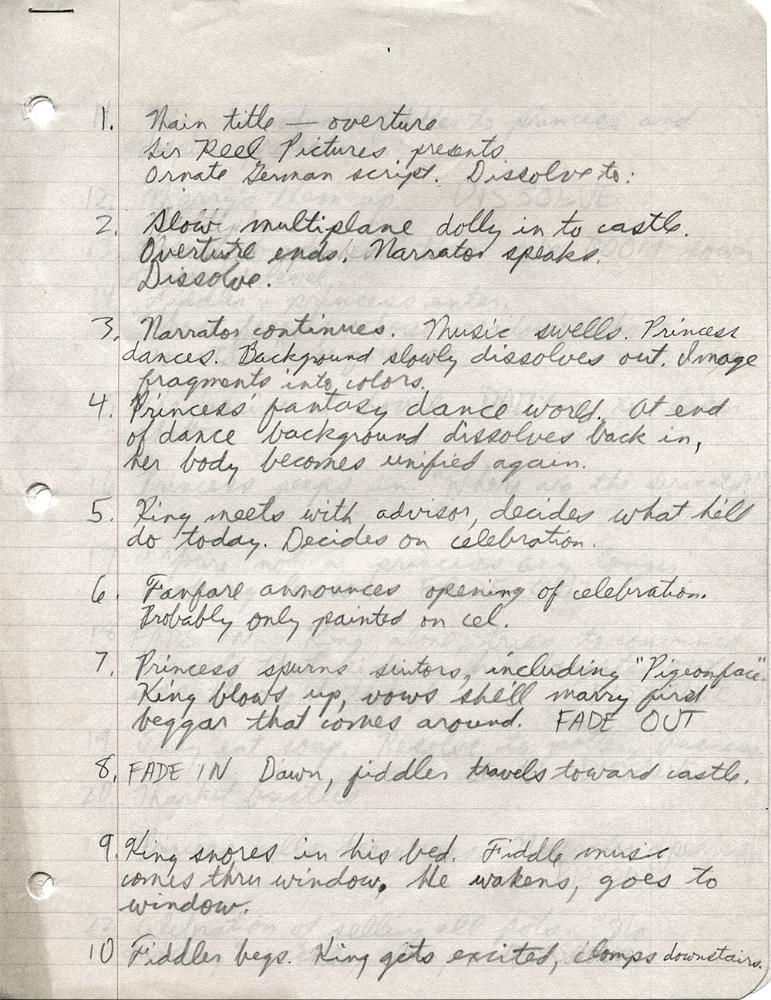 1. Main title — overture
Sir Reel Pictures presents
Ornate German script. Dissolve to:
2. Slow multiplane dolly in to castle.
Overture ends. Narrator speaks.
Dissolve.
3. Narrator continues. Music swells. Princess
dances. Background slowly dissolves out. Image
fragments into colors.
4. Princess' fantasy dance world. At end
of dance background dissolves back in,
her body becomes unified again.
5. King meets with advisor, decides what he'll
do today. Decides on celebration.
6. Fanfare announces opening of celebration.
Probably only painted on cel.
7. Princess spurns suitors, including "Pigeonface".
King blows up, vows she'll marry first
beggar that comes around. FADE OUT
8. FADE IN Dawn, fiddler travels toward castle.
9. King snores in his bed. Fiddle music
comes thru window. He wakens, goes to
window.
10 Fiddler begs. King gets excited, clomps downstairs.